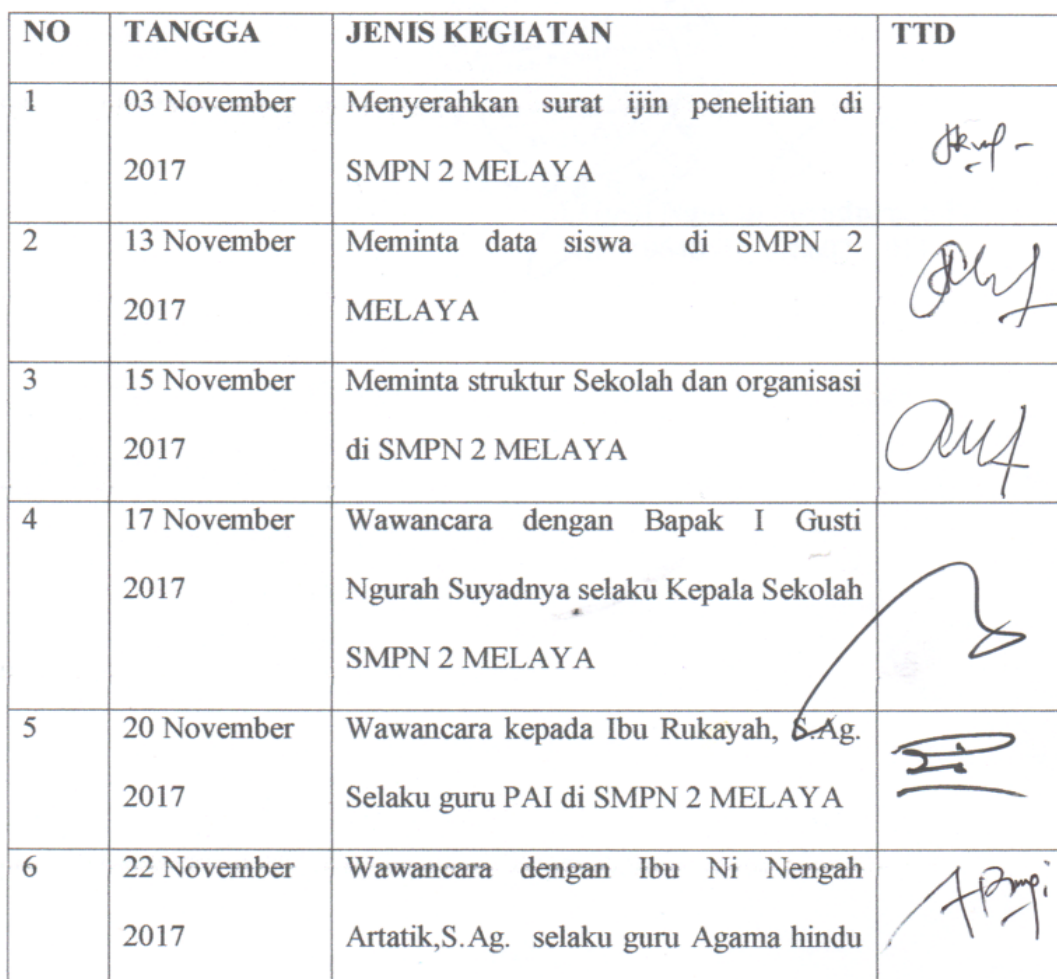 NO TANGGA JENIS KEGIATAN TTD
1 03 November Menyerahkan surat ijin penelitian di
2017 SMPN 2 MELAYA
2 13 November Meminta data siswa di SMPN 2
2017 MELAYA
3 15 November Meminta struktur Sekolah dan organisasi
2017 di SMPN 2 MELAYA
4 17 November Wawancara dengan Bapak I Gusti
2017 Ngurah Suyadnya selaku Kepala Sekolah
SMPN 2 MELAYA
5 20 November Wawancara kepada Ibu Rukayah, S.Ag.
2017 Selaku guru PAI di SMPN 2 MELAYA
6 22 November Wawancara dengan Ibu Ni Nengah
2017 Artatik,S.Ag. selaku guru Agama hindu